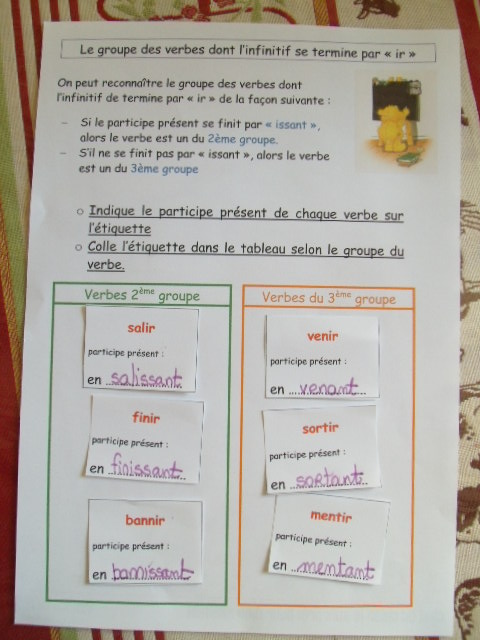 Le groupe des verbes dont l'infinitif se termine par « ir »
On peut reconnaître le groupe des verbes dont
l'infinitif de termine par « ir » de la façon suivante :
– Si le participe présent se finit par « issant »,
alors le verbe est un du 2ème groupe.
– S'il ne se finit pas par « issant », alors le verbe
est un du 3ème groupe
o Indique le participe présent de chaque verbe sur
l'étiquette
o Colle l'étiquette dans le tableau selon le groupe du
verbe.
Verbes 2ème groupe
salir
participe présent :
en salissant
finir
participe présent :
en finissant
bannir
participe présent :
en bannissant
Verbes du 3ème groupe
venir
participe présent :
en venant
sortir
participe présent :
en sortant
mentir
participe présent :
en mentant